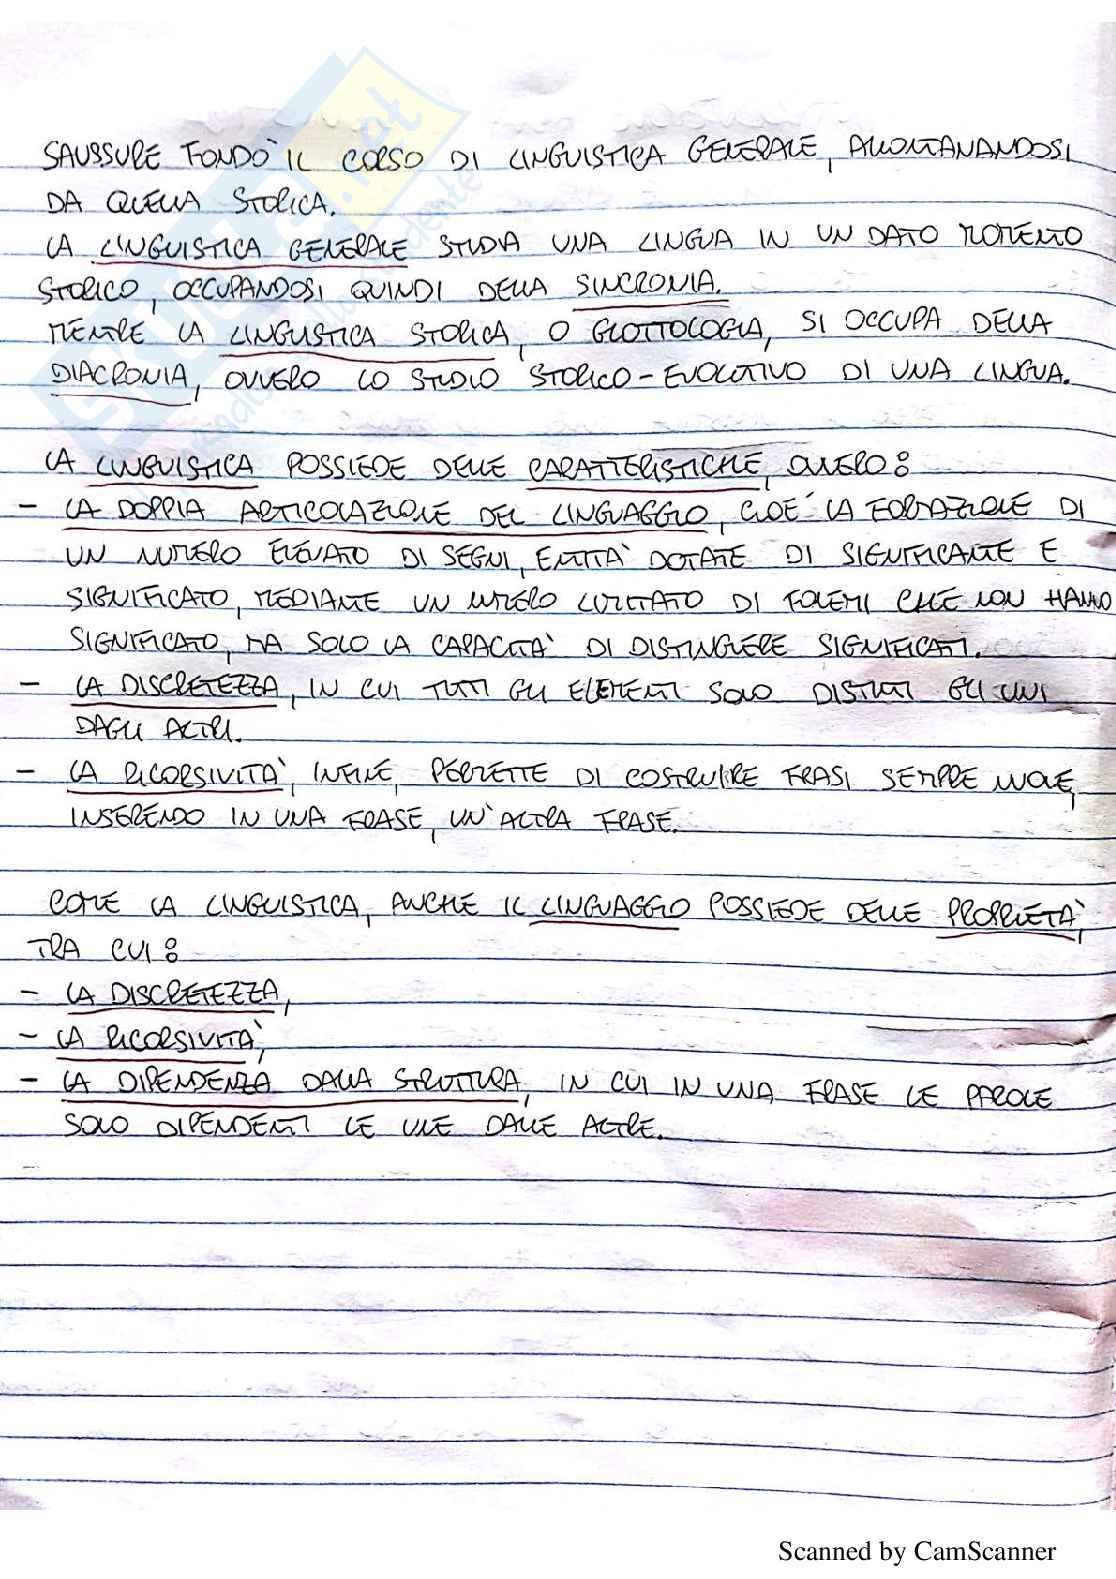 SAUSSURE FONDÒ IL CORSO DI LINGUISTICA GENERALE, ALLONTANANDOSI
DA QUELLA STORICA.
LA LINGUISTICA GENERALE STUDIA UNA LINGUA IN UN DATO MOMENTO
STORICO, OCCUPANDOSI QUINDI DELLA SINCRONIA.
MENTRE LA LINGUISTICA STORICA, O GLOTTOLOGIA, SI OCCUPA DELLA
DIACRONIA, OVVERO LO STUDIO STORICO-EVOLUTIVO DI UNA LINGUA.
LA LINGUISTICA POSSIEDE DELLE CARATTERISTICHE, OVVERO:
- LA DOPPIA ARTICOLAZIONE DEL LINGUAGGIO, CIOÉ LA FORMAZIONE DI
UN NUMERO ELEVATO DI SEGNI, ENTITÀ DOTATE DI SIGNIFICANTE E
SIGNIFICATO, MEDIANTE UN NUMERO LIMITATO DI FONEMI CHE NON HANNO
SIGNIFICATO, MA SOLO LA CAPACITÀ DI DISTINGUERE SIGNIFICATI.
- LA DISCRETEZZA, IN CUI TUTTI GLI ELEMENTI SONO DISTINTI GLI UNI
DAGLI ALTRI.
- LA RICORSIVITÀ, INFINE, PERMETTE DI COSTRUIRE FRASI SEMPRE NUOVE,
INSERENDO IN UNA FRASE, UN'ALTRA FRASE.
COME LA LINGUISTICA, ANCHE IL LINGUAGGIO POSSIEDE DELLE PROPRIETÀ,
TRA CUI:
- LA DISCRETEZZA,
- LA RICORSIVITÀ,
- LA DIPENDENZA DALLA STRUTTURA, IN CUI IN UNA FRASE LE PAROLE
SONO DIPENDENTI LE UNE DALLE ALTRE.
Scanned by CamScanner